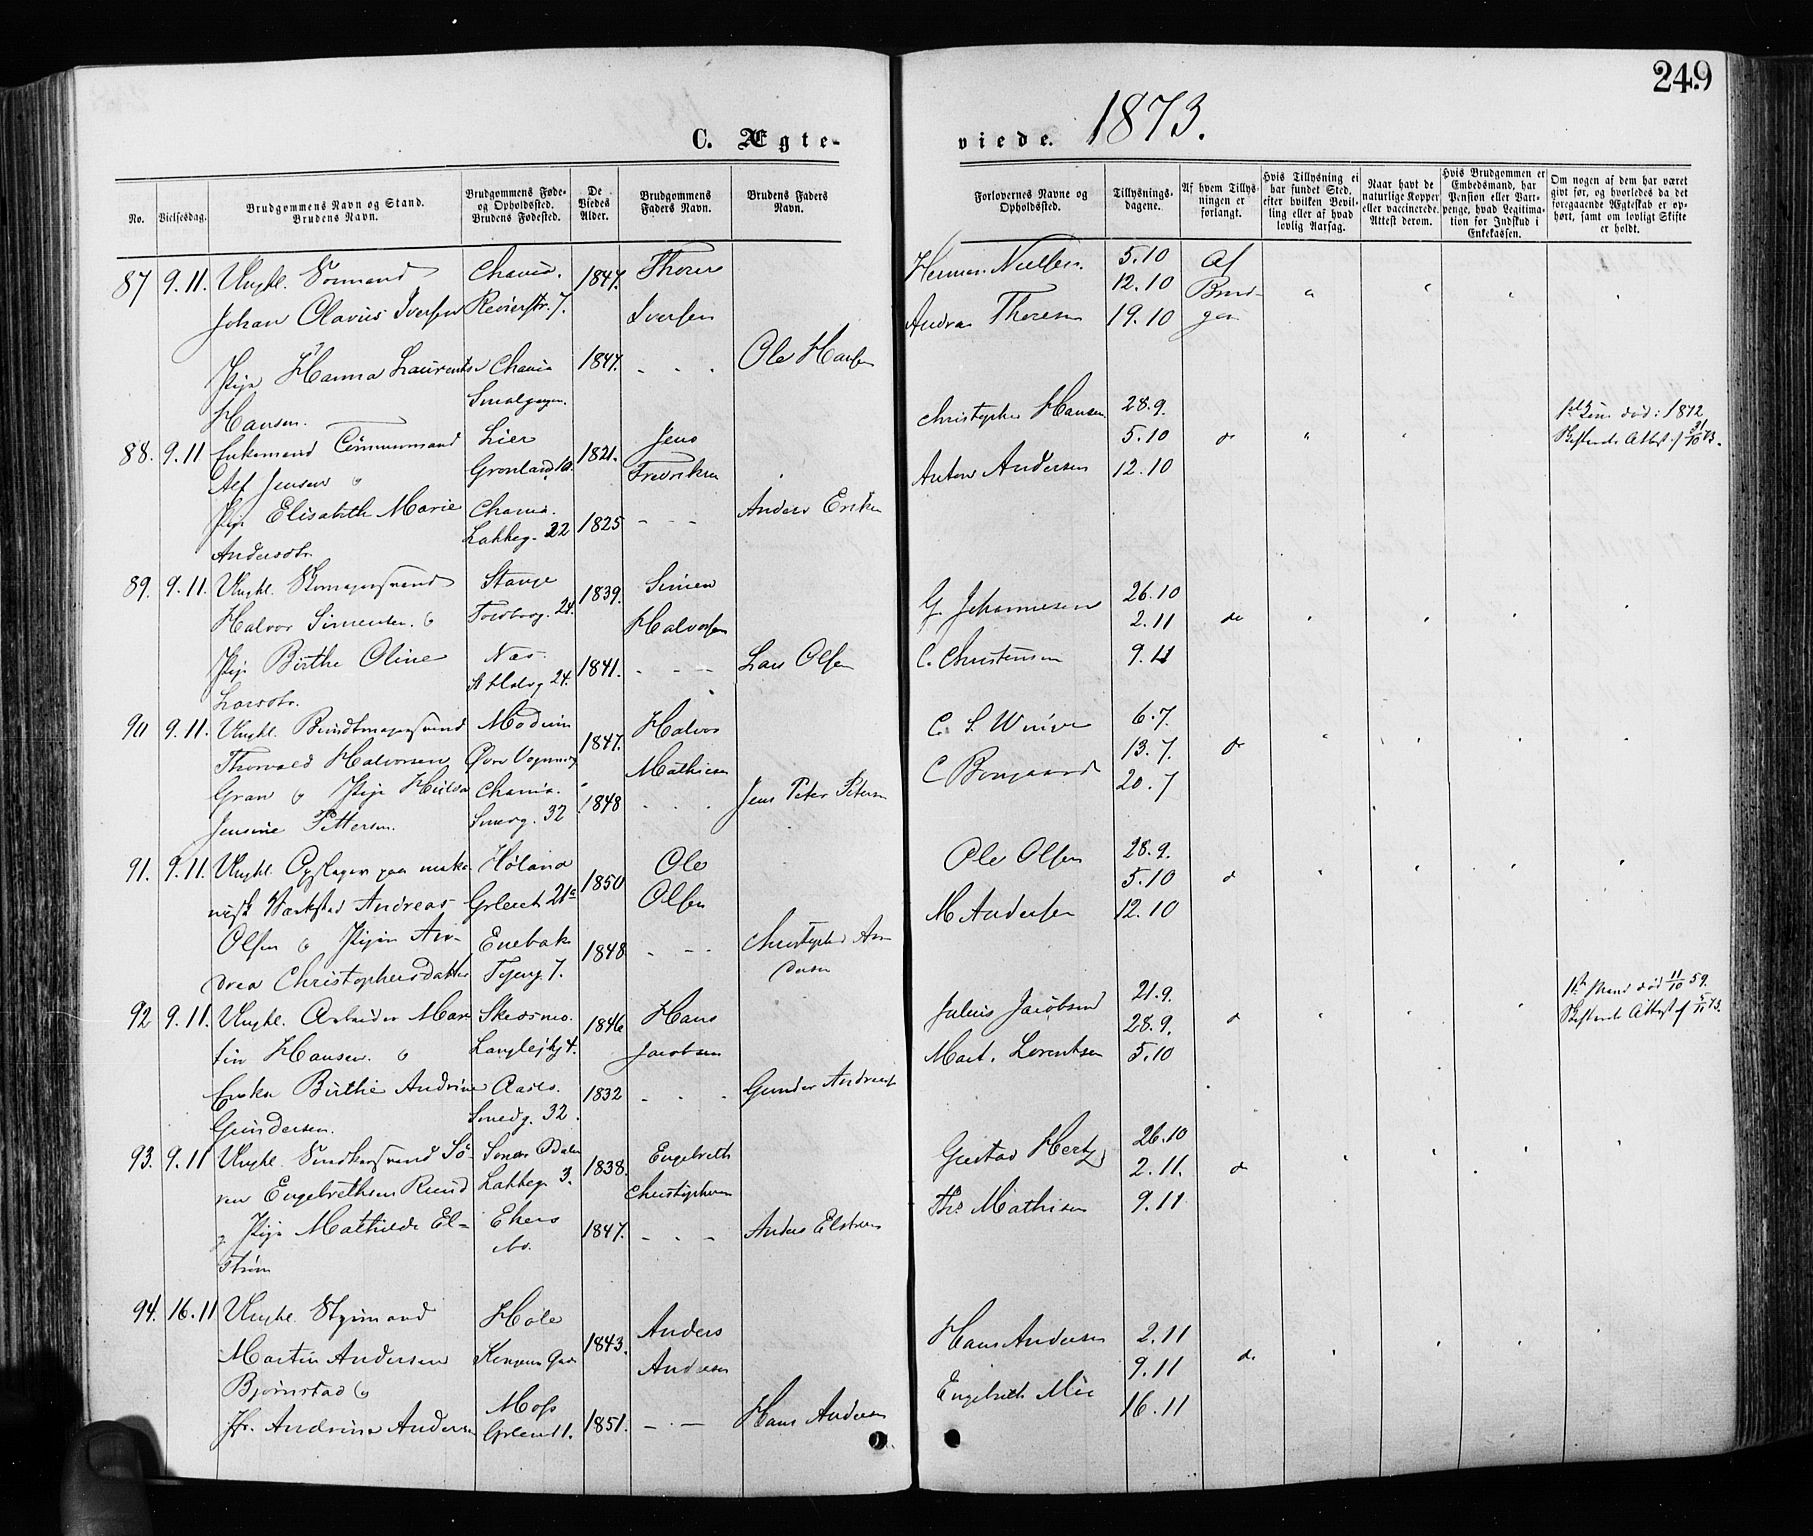 249
1873.
C. Ægte-
viede.
No.
Vielsesdag.
Brudgommens Navn og Stand.
Brudens Navn.
Brudgommens Føde-
og Opholdssted.
Brudens Fødested.
De
Viedes
Alder.
Brudgommens
Faders Navn.
Brudens Faders
Navn.
Forlovernes Navne og
Opholdssted.
Tillysnings-
dagene.
Af hvem Tillys-
ningen er
forlangt.
Hvis Tillysning ei
har fundet Sted,
efter hvilken Bevil-
ling eller af hvad
lovlig Aarsag.
Naar havt de
naturlige Kopper
eller vaccinerede.
Attest derom.
Hvis Brudgommen er
Embedsmand, har
Pension eller Vart-
penge, hvad Legitima-
tion for Indskud i
Enkekassen.
Om nogen af dem har været
givt før, og hvorledes da det
foregaaende Ægteskab er op-
hørt, samt om lovligt Skifte
er holdt.
87 9.11. Ungkl. Sømand Chania. 1847. Thores Herman Nielsen. 5.10 Af
Johan Olavius Iversen Revierstr. 7. Iversen 12.10 Brud-
Andreas Thoresen 19.10 gom
Pige Hanna Laurentse Chania 1847. - - - Ole Hansen
Hansen. Smalgangen.
88. 9.11 Enkemand Tømmermand Lier 1821. Jens Christopher Hansen 28.9. do 1ste Kone død: 1872
Alf Jensen & Grønland 10. Fredriksen 5.10 Skifterets Attest af 31/10 73.
Anton Andersen 12.10
Pige Elisabeth Marie Chania. 1825 - - - Anders Eriksen
Andersdtr. Lakkeg. 22
89. 9.11. Ungkl. Skomagersvend Stange 1839. Simen G. Johannesen 26.10
Halvor Simensen. & Torvbg. 24. Halvorsen 2.11 do
Pige Birthe Oline Næs. 1841. - - - Lars Olsen C. Christensen 9.11
Larsdtr. 24.
90 9.11. Ungkl. Bundtmagersvend Modum 1847. Halvor C. S. 6.7.
Thorvald Halvorsen Øvre Vognmdg Mathiesen 13.7. do
Gran & Pige Hulda Chania. 1848 - - - Jens Peter Petersen C 20.7
Jensine Pettersen. Smedg. 32
91. 9.11. Ungkl. Opslager paa meka- Høland 1850 Ole Ole Olsen 28.9.
nisk Værksted Andreas Grleret 21a Olsen 5.10 do
M Andersen 12.10
Olsen & Pigen An- Enebak 1848 - - - Christopher An-
drea Christophersdatter Tøieng. 7. dersen
92 9.11. Ungkl. Arbeider Mar- Skedsmo. 1846 Hans Julius Jacobsen 21.9. 1ste Mand død 11/10 59.
tin Hansen. & Langleikj 4. Jacobsen 28.9. do Skifterets Attest af 5/11 73.
Mart. Lorentsen 5.10
Enke Birthe Andrine Aas. 1832 - - - Gunder Andreas
Gundersen. Smedg. 32.
93. 9.11 Ungkl. Snedkersvend Sø- Søndre Odalen 1838. Engebreth Gustav Hertz 26.10
ren Engebrethsen Ruud Lakkeg. 3. Christophersen 2.11. do
Ths Mathisen 9.11
& Pige Mathilde El- Ekers 1847. - - - Anders Elstrøm
strøm do.
94. 16.11 Ungkl. Styrmand Hole 1843. Anders Hans Andersen 2.11
Martin Andersen Kongens Gade Andersen 9.11 do
Bjørnstad & Engebreth Moe 16.11
Jfr. Andrine Andersen Moss 1851. - - Hans Andersen
Grleret 1.